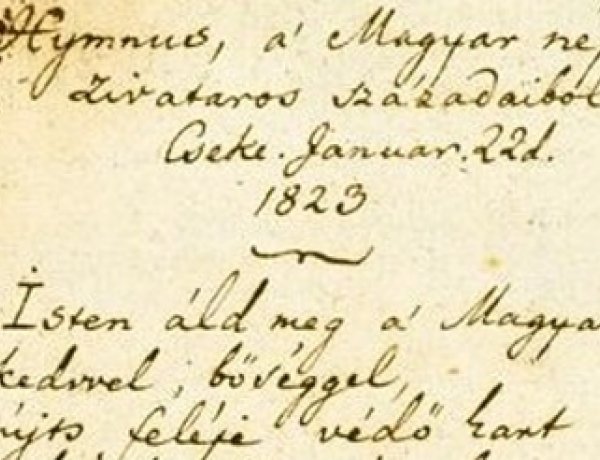 Hymnus, a' Magyar nép
zivataros századaiból
Cseke. Januar. 22d.
1823
Isten áld meg a' Magya
kedvvel, bőséggel,
újts feléje védő kart